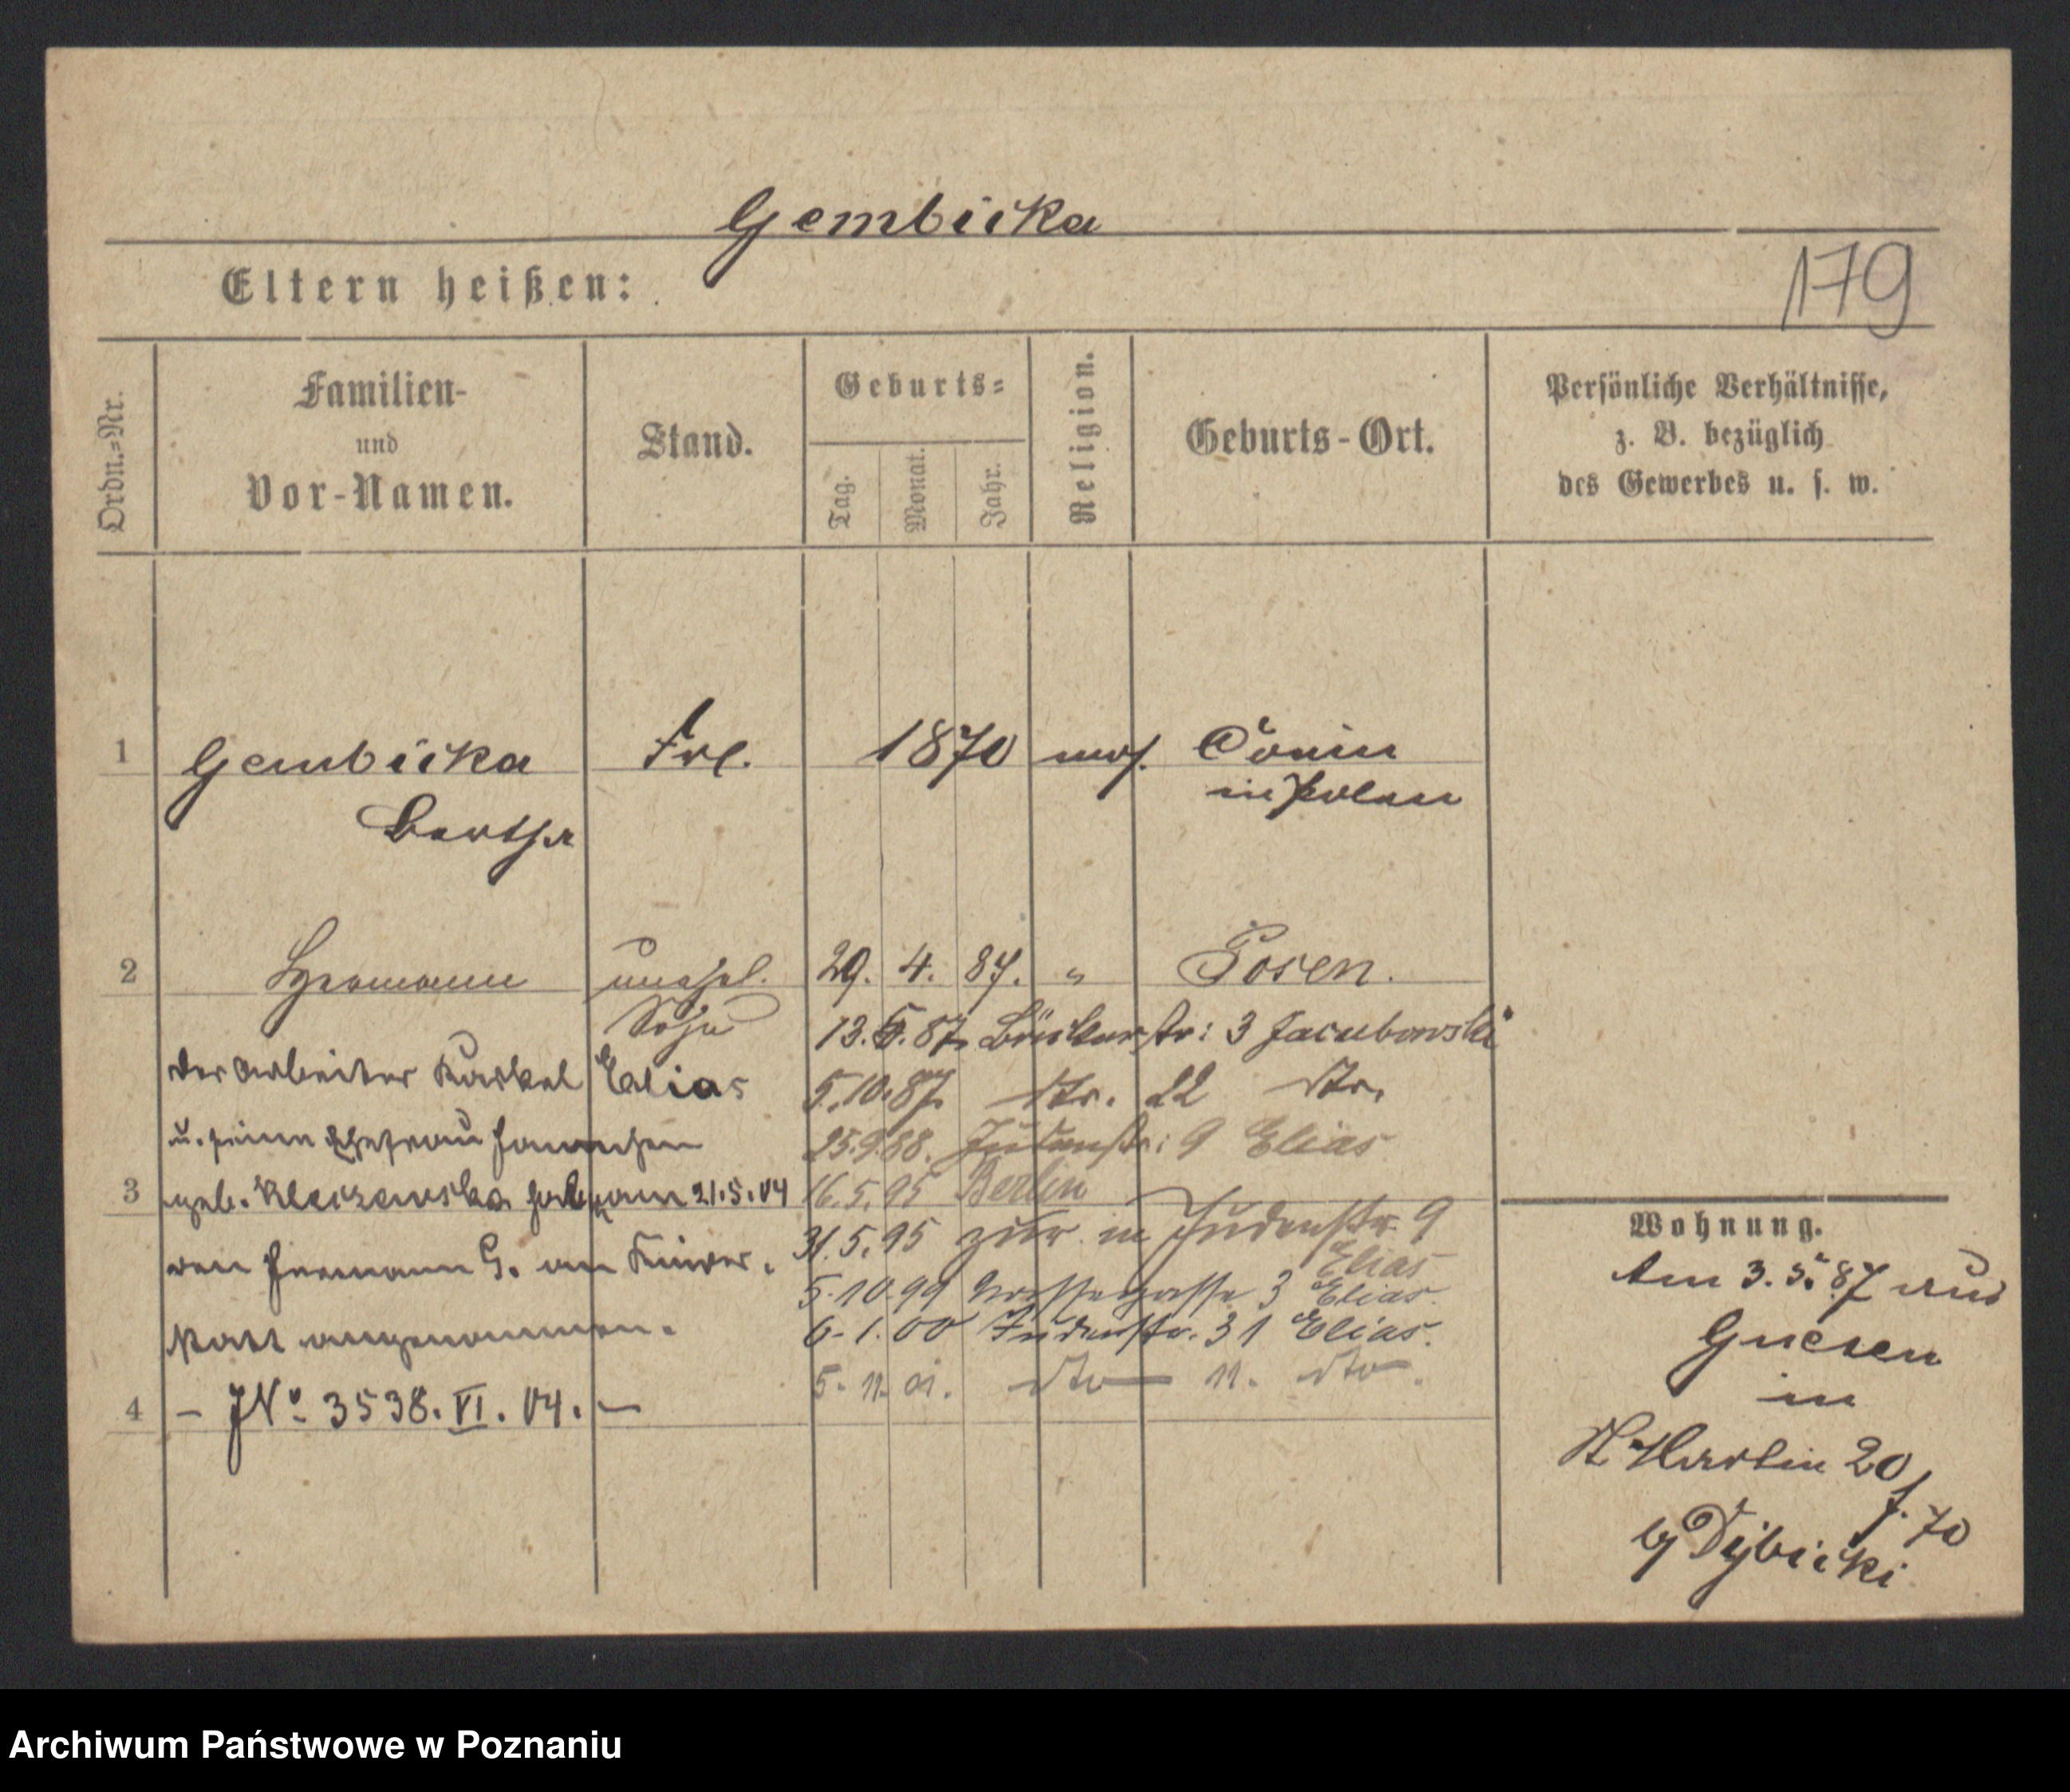 Gembicka
Eltern heißen:
179
Ordn.-Nr.
Familien-
und
Vor-Namen.
Stand.
Geburts-
Tag.
Monat.
Jahr.
Religion.
Geburts-Ort.
Persönliche Verhältnisse,
z. B. bezüglich
des Gewerbes u. s. w.
1 Gembicka Frl. 1870 mos. Conin
Bertha in Polen
2 Hermann unehel. 29. 4. 87. " Posen.
Sohn
13. 5. 87. str: 3 Jacubowski
Der Arbeiter Kaskel Elias
5. 10. 87. dto. 22 dto.
u. seine Ehefrau
25. 9. 88. Judenstr: 9 Elias
3 geb. haben am 21.5.04
16. 5. 95 Berlin
31. 5. 95 zur. in Judenstr. 9
Elias
den Hermann G. an Kindes-
5. 10. 99 Nassegasse 3 Elias.
6. 1. 00 Judenstr. 31 Elias.
statt angenommen.
5. 11. 01. dto 11. dto.
4 - JNo. 3538. VI. 04. -
Wohnung.
Am 3. 5. 87 aus
Gnesen
in
St Martin 20
f. 70
by Dybicki
Archiwum Państwowe w Poznaniu